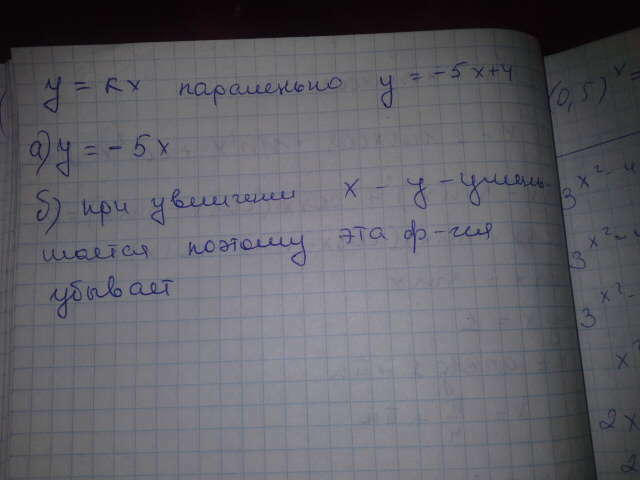 y = kx параленьно y = -5x+4
а) y = -5x
б) при увеличении x - y - умень-
шается поэтому эта ф.-ция
убывает
(0,5)
3 x²-4
3 x²-
3
x
2x
2